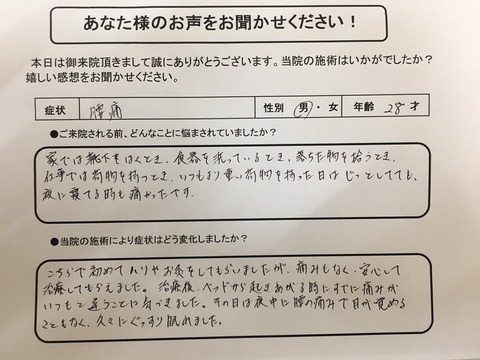 あなた様のお声をお聞かせください！
本日は御来院頂きまして誠にありがとうございます。当院の施術はいかがでしたか？
嬉しい感想をお聞かせください。
症状 腰痛 性別 男・女 年齢 28才
●ご来院される前、どんなことに悩まされていましたか？
家では靴下をはくとき、食器を洗っているとき、落ちた物を拾うとき、
仕事では荷物を持つとき、いつもより重い荷物を持った日はじっとしてても、
夜に寝てる時も痛かったです。
●当院の施術により症状はどう変化しましたか？
こちらで初めてハリやお灸をしてもらいましたが、痛みもなく、安心して
治療してもらえました。治療後、ベッドから起きあがる時にすでに痛みが
いつもと違うことに気づきました。その日は夜中に腰の痛みで目が覚める
こともなく、久々にぐっすり眠れました。